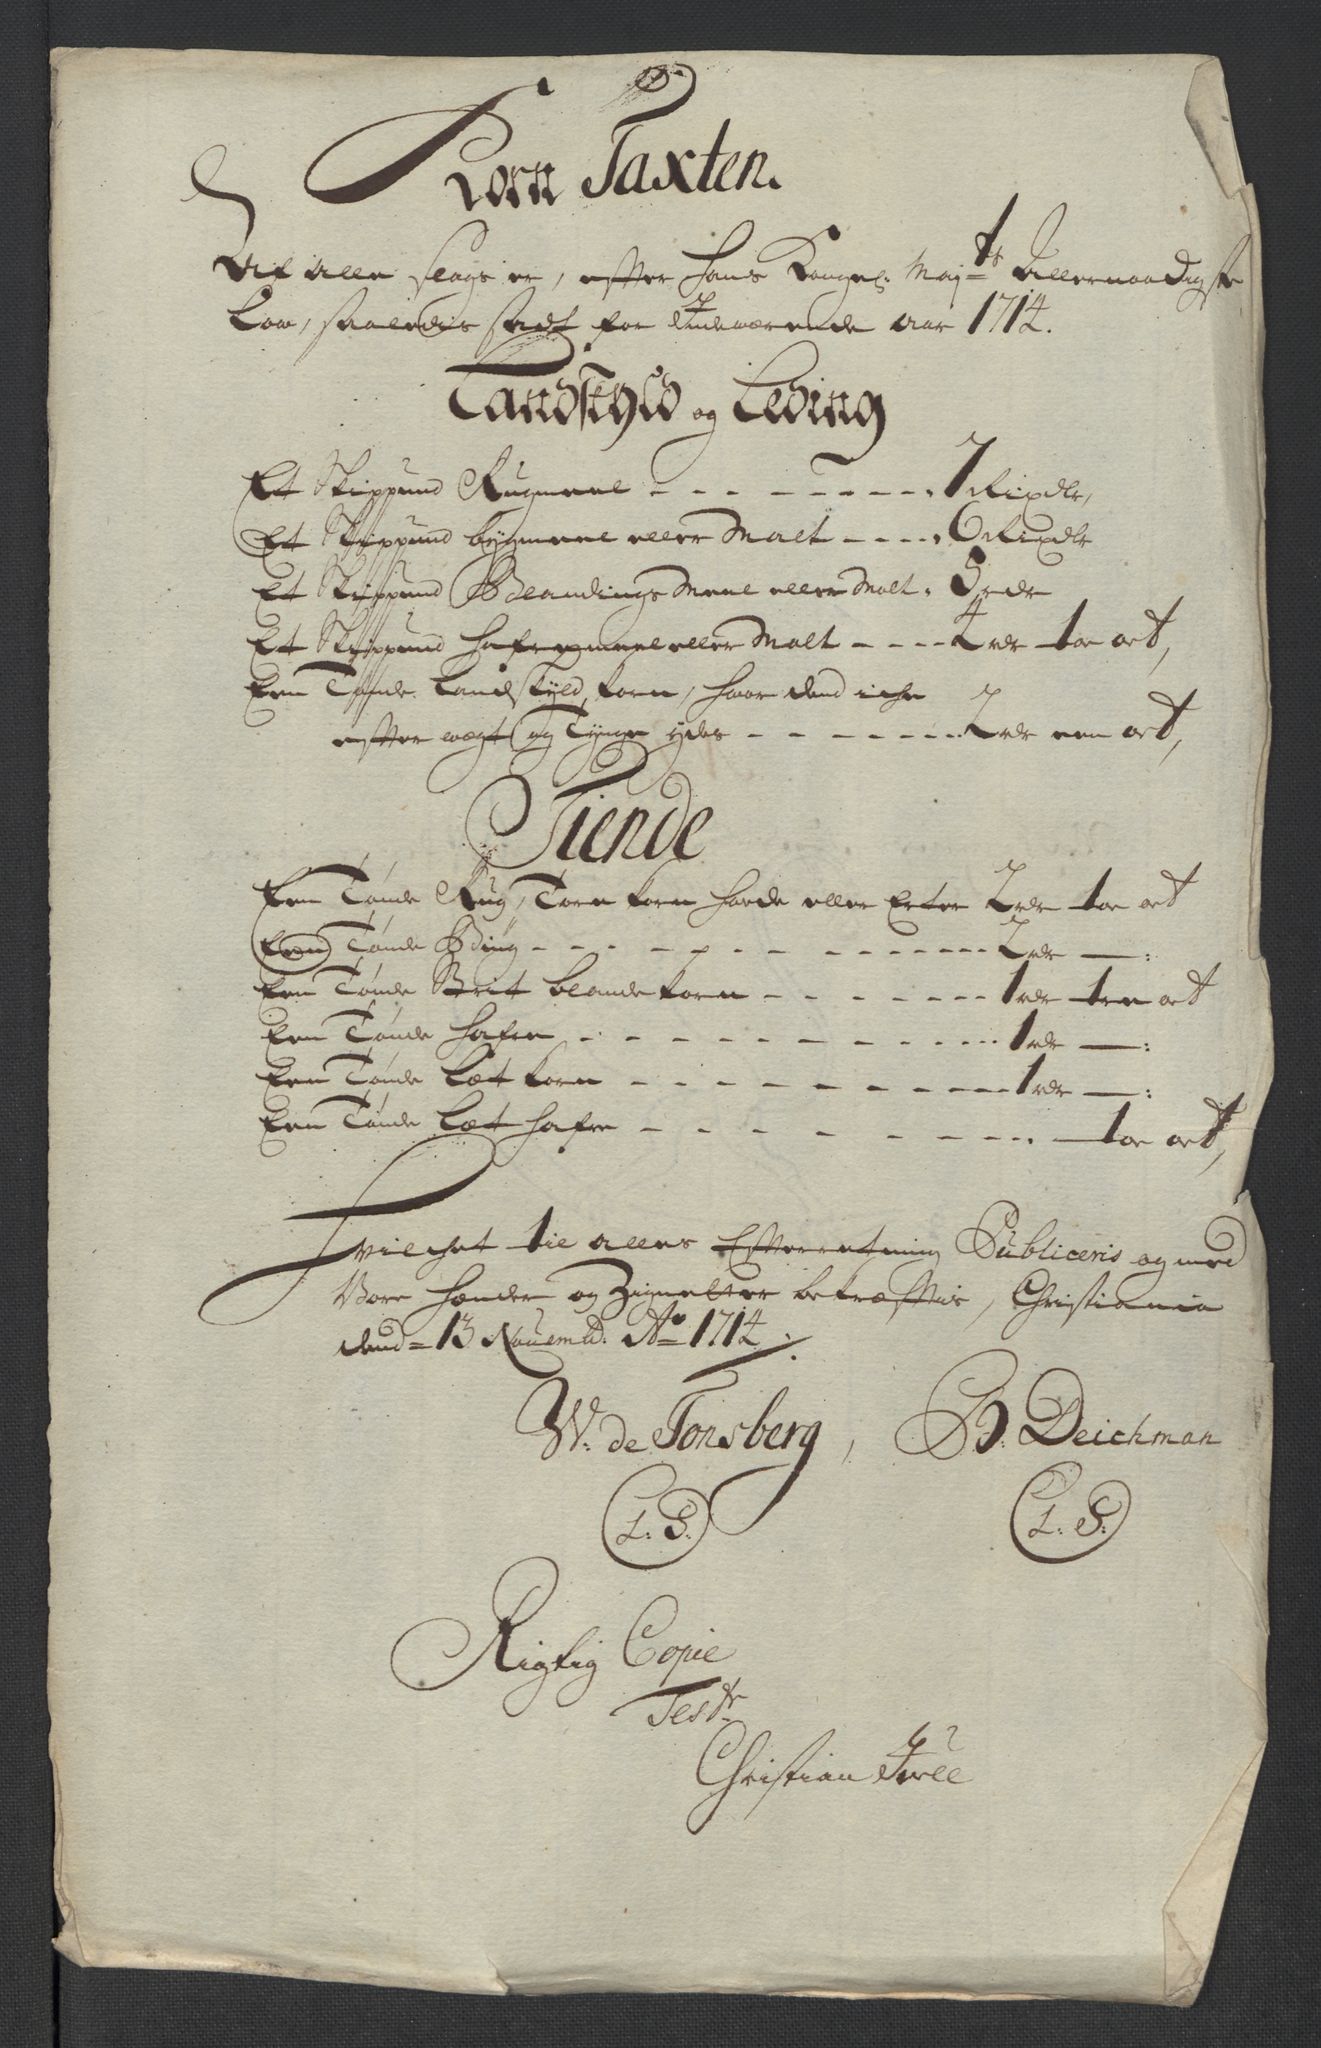 Korn Taxten.
Udi alle slags er, efter Hans Kongel: Maj:ts Allernaadigste
Lov, saaledis sadt for Indeværende aar 1714.
Landskyld og Leding
Et Skippund Rugmeel - - - - - - 7 Rixdlr,
Et Skippund bygmeel eller Malt - - - - 6 Rixdlr
Et Skippund Blandings Meel eller Malt. 5 rdr
Et Skippund Hafremeel eller Malt - - - - 4 rdr toe ort,
Een Tønde Landskyld korn, hvor dend iche
efter wegt og Tynge ydes - - - - - - - 2 rdr een ort,
Tiende
Een Tønde Rug, Torn korn Hvede eller Erter 2 rdr toe ort
Een Tønde Biug - - - - - - - - - - 2 rdr —:
Een Tønde Brit blande korn - - - - - - - 1 rdr tre ort
Een Tønde Hafre - - - - - - - - - - 1 rdr —:
Een Tønde Læt korn - - - - - - - - - 1 rdr —:
Een Tønde Læt Hafre - - - - - - - - - toe ort,
Hvilchet til alles Efterretning Publiceris og med
Vore Hænder og Zigneter bekræftis, Christiania
dend 13 Novemb: Ao 1714.
W: de Tonsberg, B: Deichman
L: S: L: S:
Rigtig Copie
Test:
Christian